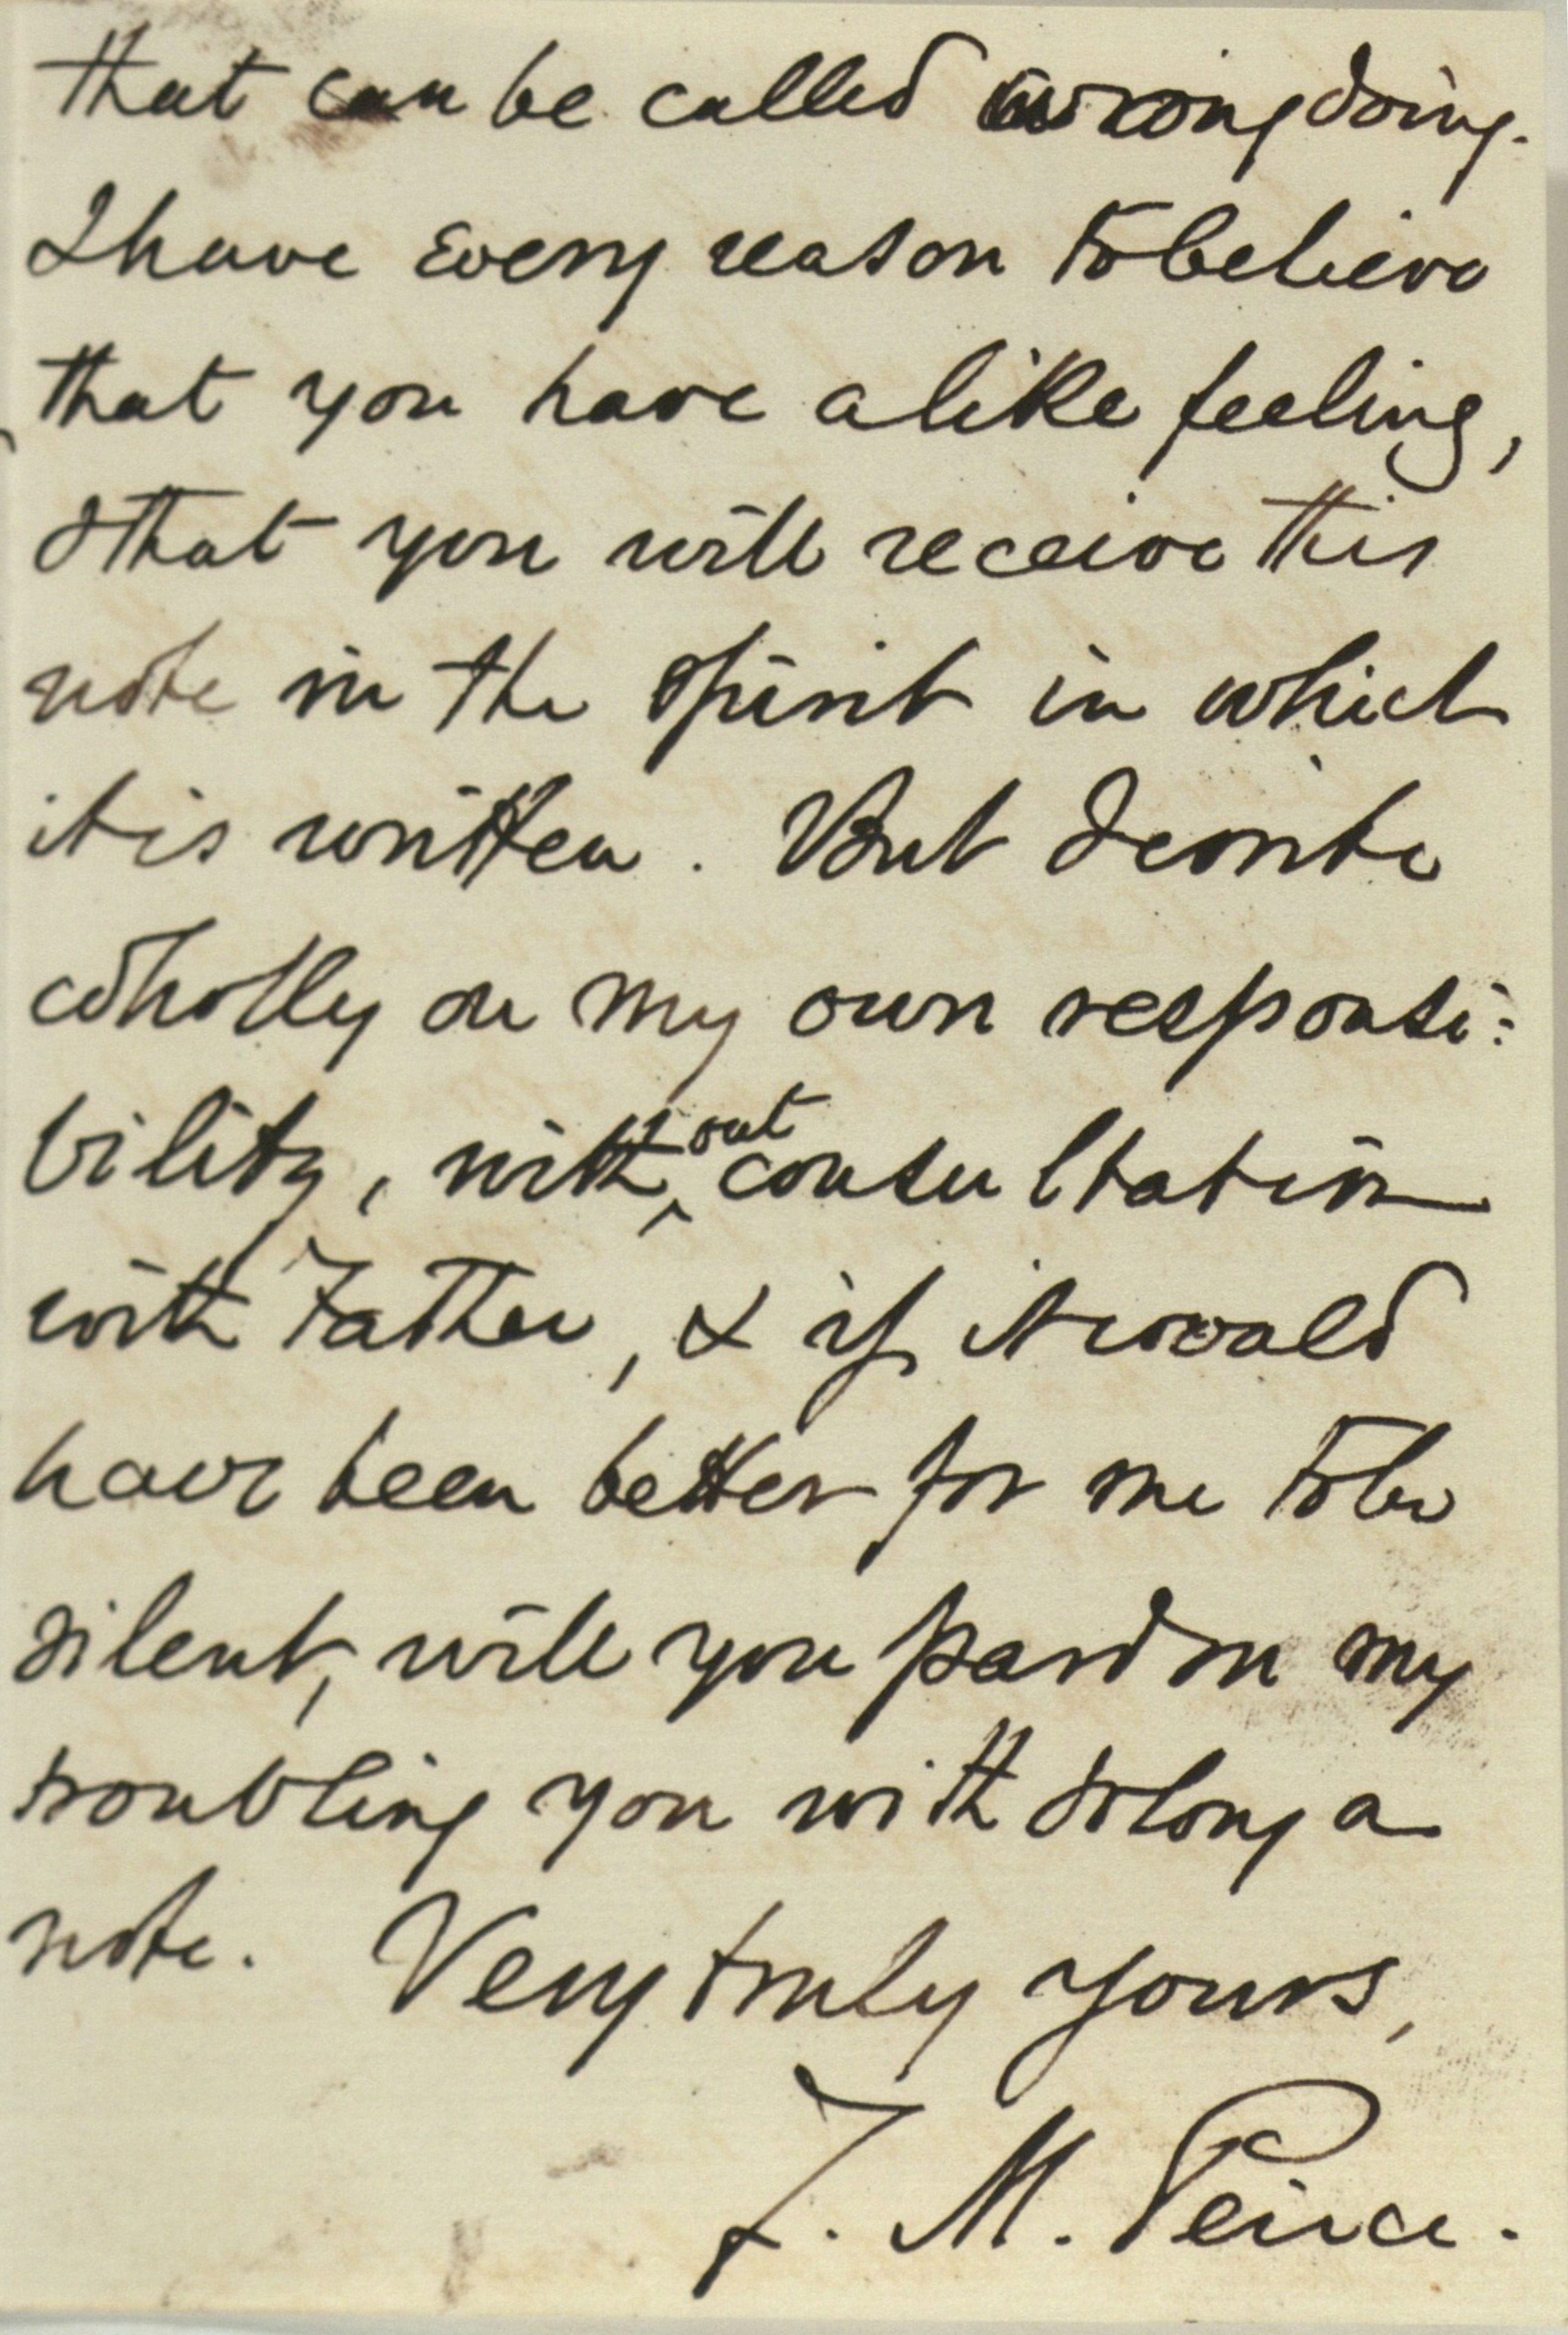 that can be called wrong doing.
I have every reason to believe
that you have a like feeling,
& that you will receive this
note in the spirit in which
it is written. But I write
wholly on my own responsi:
bility, without consultation
with Father, & if it would
have been better for me to be
silent, will you pardon my
troubling you with so long a
note. Very truly yours,
J. M. Peirce.